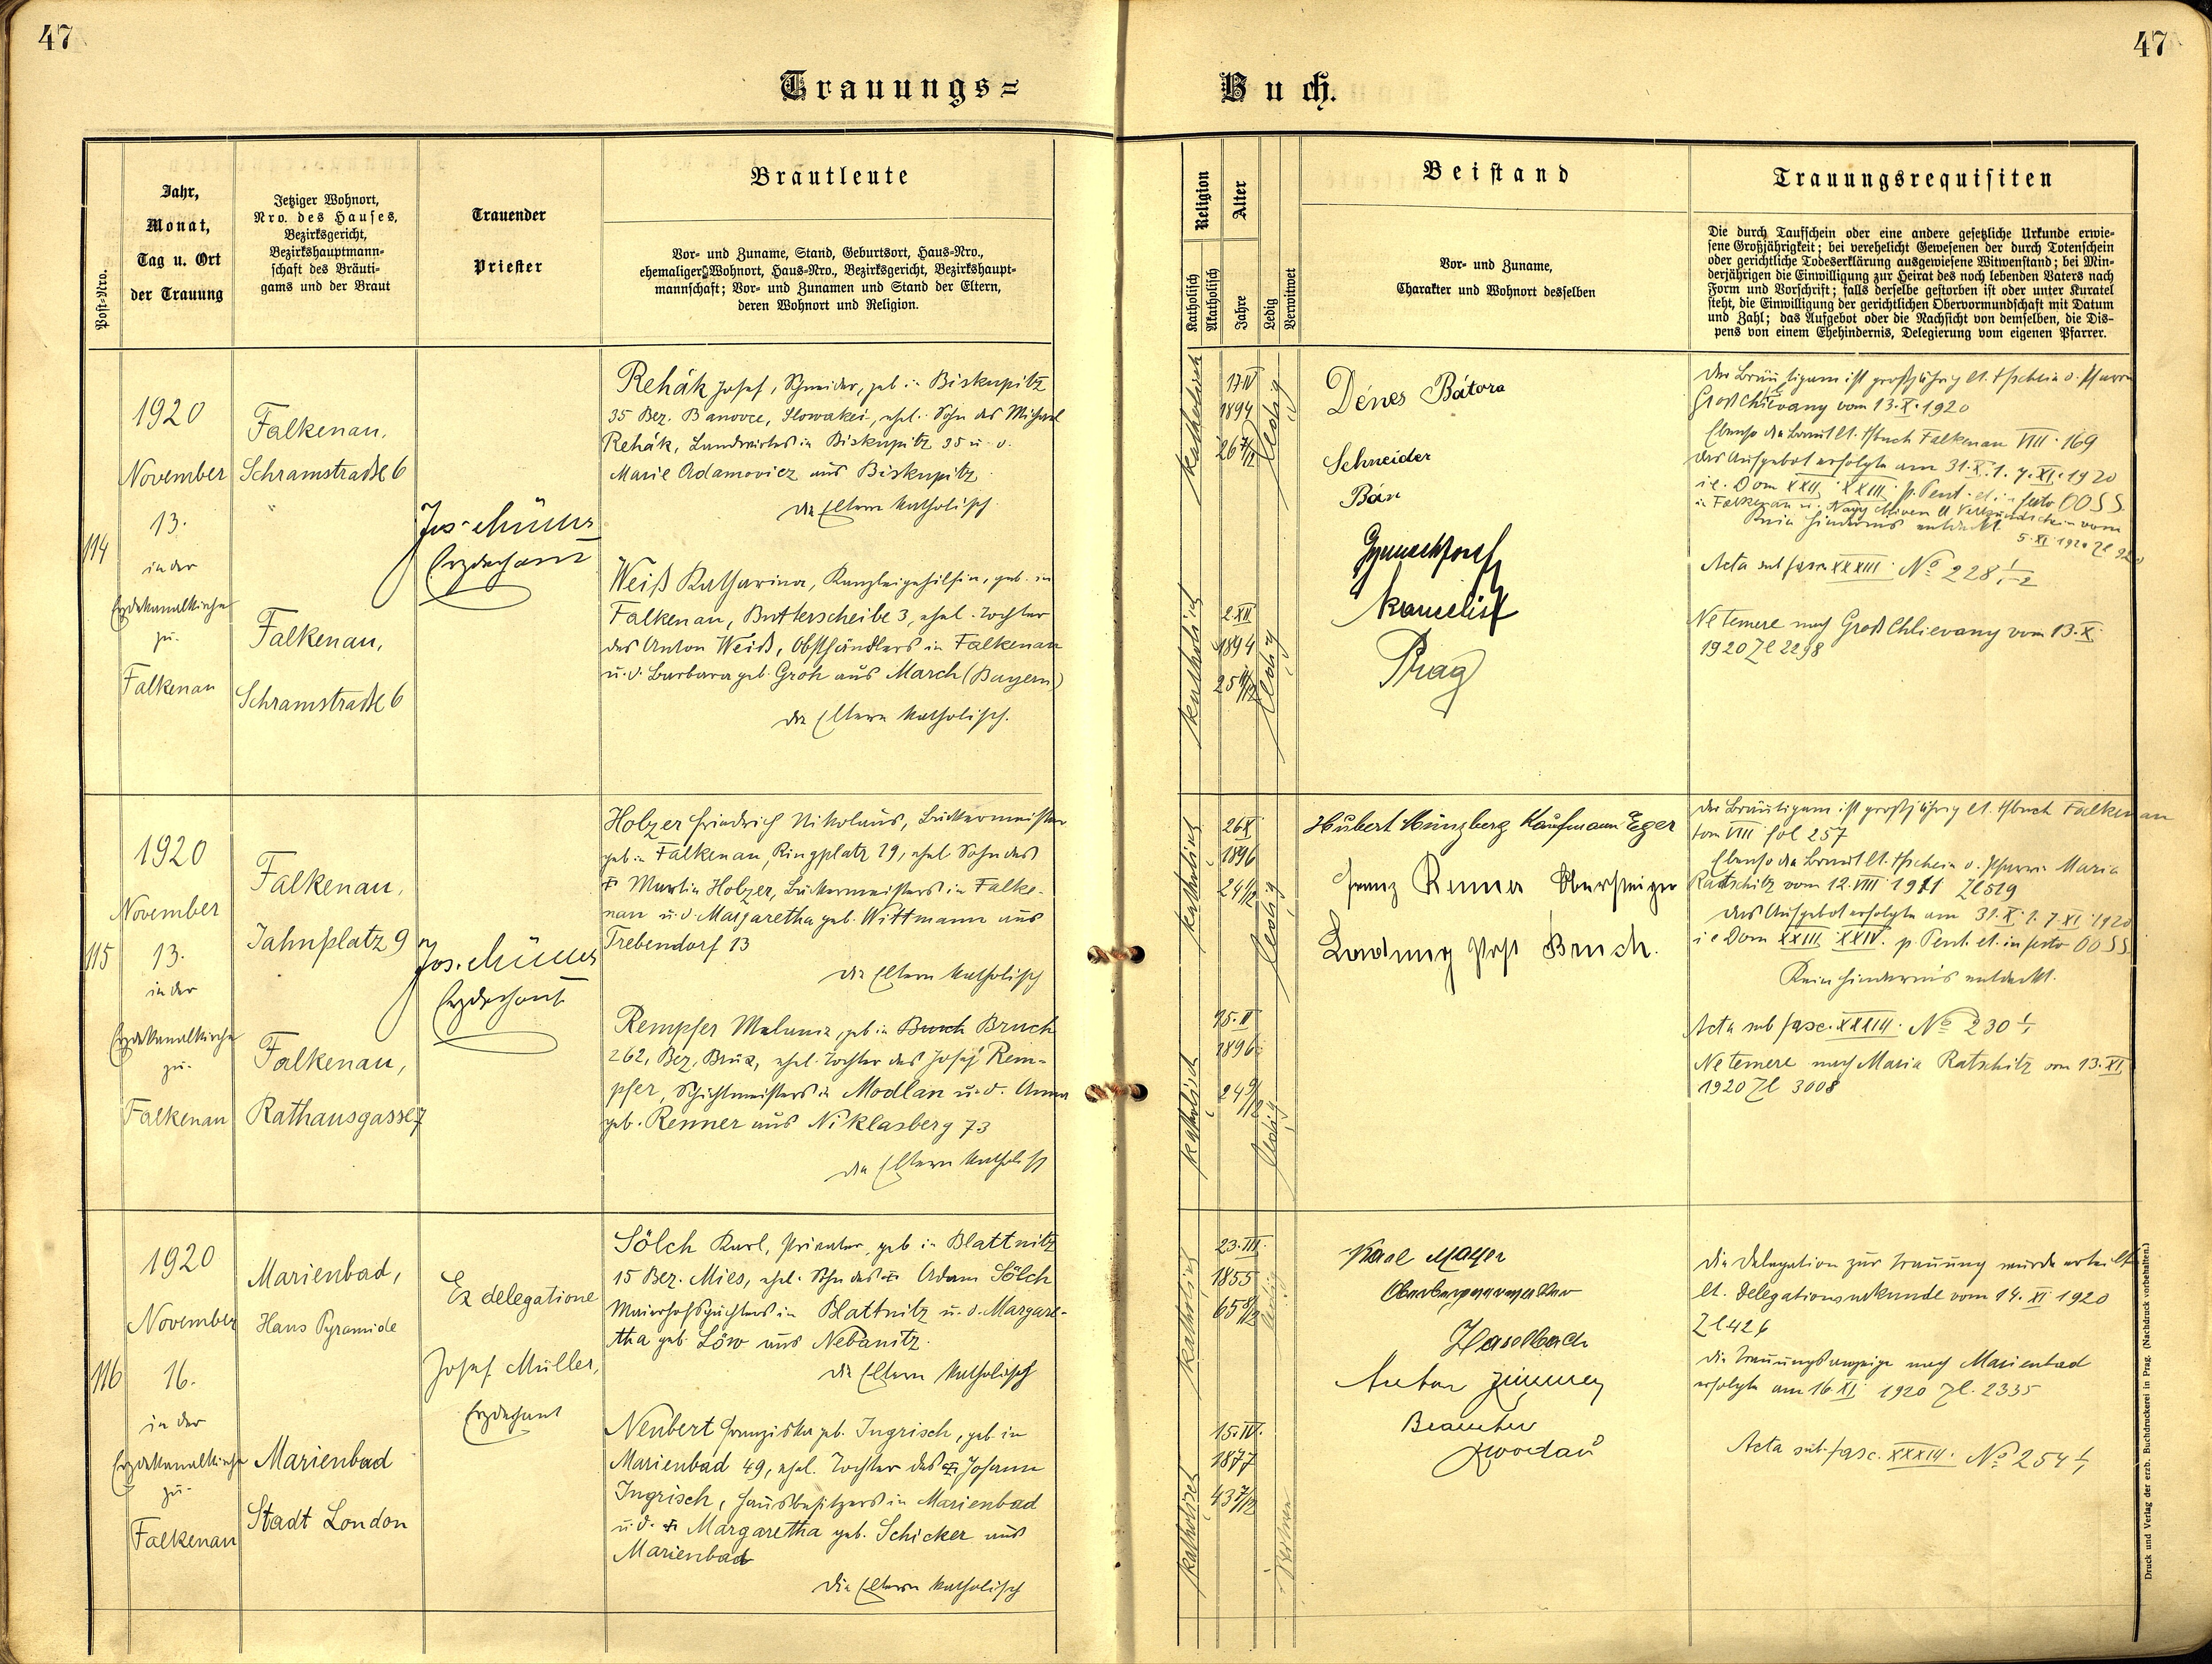 47
47
Trauungs=
Buch.
Post-Nro.
Jahr,
Monat,
Tag u. Ort
der Trauung
Jetziger Wohnort,
Nro. des Hauses,
Bezirksgericht,
Bezirkshauptmann-
schaft des Bräuti-
gams und der Braut
Trauender
Priester
Brautleute
Vor- und Zuname, Stand, Geburtsort, Haus-Nro.,
ehemaliger Wohnort, Haus-Nro., Bezirksgericht, Bezirkshaupt-
mannschaft; Vor- und Zunamen und Stand der Eltern,
deren Wohnort und Religion.
Religion
Katholisch
Akatholisch
Alter
Jahre
Ledig
Verwitwet
Beistand
Vor- und Zuname,
Charakter und Wohnort desselben
Trauungsrequisiten
Die durch Taufschein oder eine andere gesetzliche Urkunde erwie-
sene Großjährigkeit; bei verehelicht Gewesenen der durch Totenschein
oder gerichtliche Todeserklärung ausgewiesene Witwenstand; bei Min-
derjährigen die Einwilligung zur Heirat des noch lebenden Vaters nach
Form und Vorschrift; falls derselbe gestorben ist oder unter Kuratel
steht, die Einwilligung der gerichtlichen Obervormundschaft mit Datum
und Zahl; das Aufgebot oder die Nachsicht von demselben, die Dis-
pens von einem Ehehindernis, Delegierung vom eigenen Pfarrer.
114
1920
November
13.
in der
Erzdekanalkirche
zu
Falkenau
Falkenau,
Schramstraße 6
Falkenau,
Schramstraße 6
Jos. Müller
Erzdechant
Rehák Josef, Schneider, geb. in Biskupitz
35 Bez. Banovce, Slowakei, ehel. Sohn des Michael
Rehák, Landwirtes in Biskupitz 35 u. d.
Marie Adamovicz aus Biskupitz.
die Eltern katholisch.
Weiß Katharina, Kanzleigehilfin, geb. in
Falkenau, Butterscheibe 3, ehel. Tochter
des Anton Weiß, Obsthändlers in Falkenau
u. d. Barbara geb. Groh aus March (Bayern)
die Eltern katholisch.
katholisch
17. IV
1894
26 7/12
ledig
katholisch
2. XII
1894
25 11/12
ledig
Dénes Bátora
Schneider
Bán
Kanzelist
Prag
der Bräutigam ist großjährig lt. Tfschein d. Pfarre
Groß Chlievany vom 13. X. 1920
Ebenso die Braut lt. Tfbuch Falkenau VIII. 169
das Aufgebot erfolgte am 31. X. 1. 7. XI. 1920
i. e. Dom XXIII. XXIV. p. Pent. et in festo OO SS
in Falkenau u. Nagy lt. Verkündschein vom
Kein Hindernis entdeckt. 5. XI 1920 Zl
Acta sub fasc. XXXIII. No 228 1/1-2
Ne temere nach Groß Chlievany vom 13. X.
1920 Zl 2298
115
1920
November
13.
in der
Erzdekanalkirche
zu
Falkenau
Falkenau,
Jahnplatz 9
Falkenau,
Rathausgasse 7
Jos. Müller
Erzdechant
Holzer Friedrich Nikolaus, Bäckermeister
geb. in Falkenau, Ringplatz 29, ehel. Sohn des
Martin Holzer, Bäckermeisters in Falke-
nau u. d. Margaretha geb. Wittmann aus
Trebendorf 13
die Eltern katholisch
Rempfer Melanie, geb. in Bruch
262, Bez. Brüx, ehel. Tochter des Josef Rem-
pfer, Schichtmeisters in Modlan u. d. Anna
geb. Renner aus Niklasberg 73
die Eltern katholisch
katholisch
26 X
1896
24 1/12
ledig
katholisch
15. II
1896
24 9/12
ledig
Hubert Münzberg Kaufmann Eger
Franz Renner Obersteiger
Ladung Post Bruch.
der Bräutigam ist großjährig lt. Tfbuch Falkenau
tom VIII fol 257
Ebenso die Braut lt. Tfschein d. Pfarre Maria
Ratschitz vom 12. VIII 1911 Zl 519
das Aufgebot erfolgte am 31. X. 1. 7. XI. 1920
i e Dom XXIII XXIV. p. Pent. et in festo OO SS.
Kein Hindernis entdeckt.
Acta sub fasc. XXXIII. No 230 1/1
Ne temere nach Maria Ratschitz vom 13. XI
1920 Zl 3008
116
1920
November
16.
in der
Erzdekanalkirche
zu
Falkenau
Marienbad,
Haus Pyramide
Marienbad
Stadt London
Ex delegatione
Josef Müller,
Erzdechant
Sölch Karl, Privatier, geb. in Blattnitz
15 Bez. Mies, ehel. Sohn des Adam Sölch
Maierhofspächters in Blattnitz u. d. Margare-
tha geb. Löw aus Nebanitz.
die Eltern katholisch
Neubert Franziska geb. Ingrisch, geb. in
Marienbad 49, ehel. Tochter des Johann
Ingrisch, Hausbesitzers in Marienbad
u. d. Margaretha geb. Schicker aus
Marienbad
die Eltern katholisch
katholisch
23. III.
1855
65 8/12
ledig
katholisch
15. IV.
1877
43 7/12
Karl Mayer
Oberbergverwalter
Haselbach
Anton Zimmer
Beamter
Zwodau
Die Delegation zur Trauung wurde erteilt
lt. Delegationsurkunde vom 14. XI 1920
Zl 426
die Trauungsanzeige nach Marienbad
erfolgte am 16. XI. 1920 Zl. 2335
Acta sub fasc. XXXIII. No 254 1/1
Druck und Verlag der erzb. Buchdruckerei in Prag. (Nachdruck vorbehalten.)